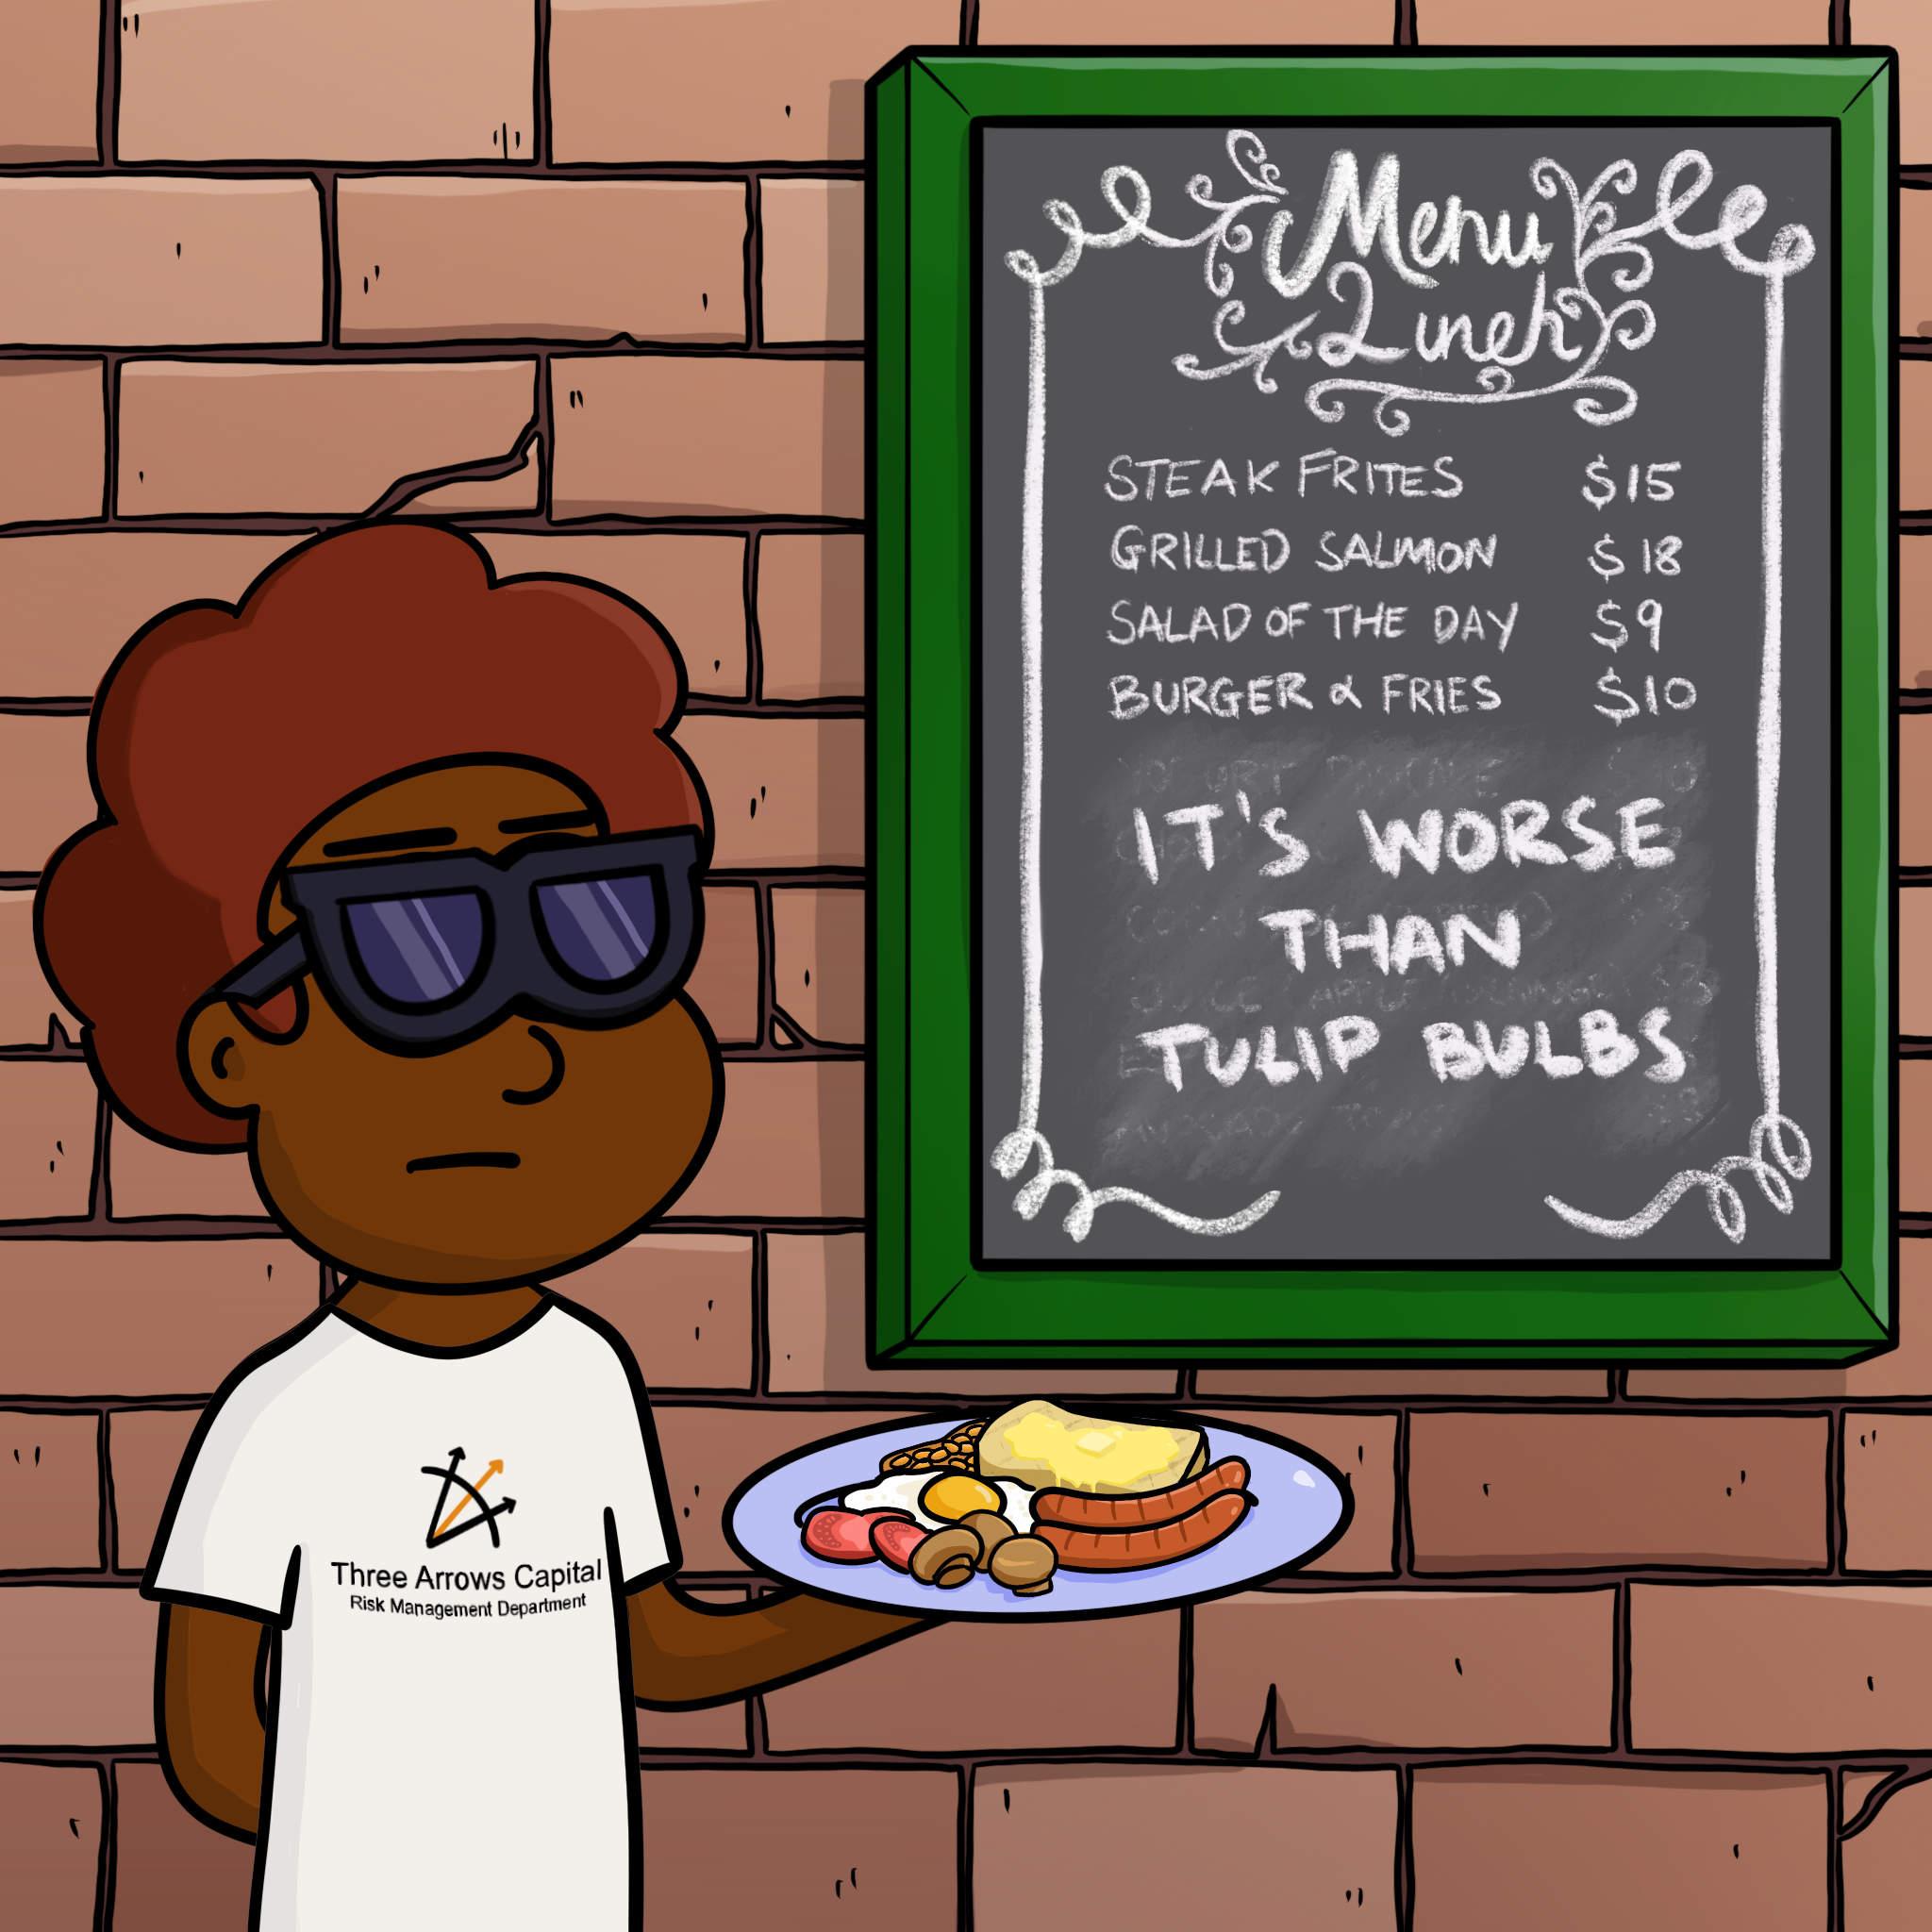 Menu
Lunch
STEAK FRITES $15
GRILLED SALMON $18
SALAD OF THE DAY $9
BURGER & FRIES $10
IT'S WORSE
THAN
TULIP BULBS
Three Arrows Capital
Risk Management Department